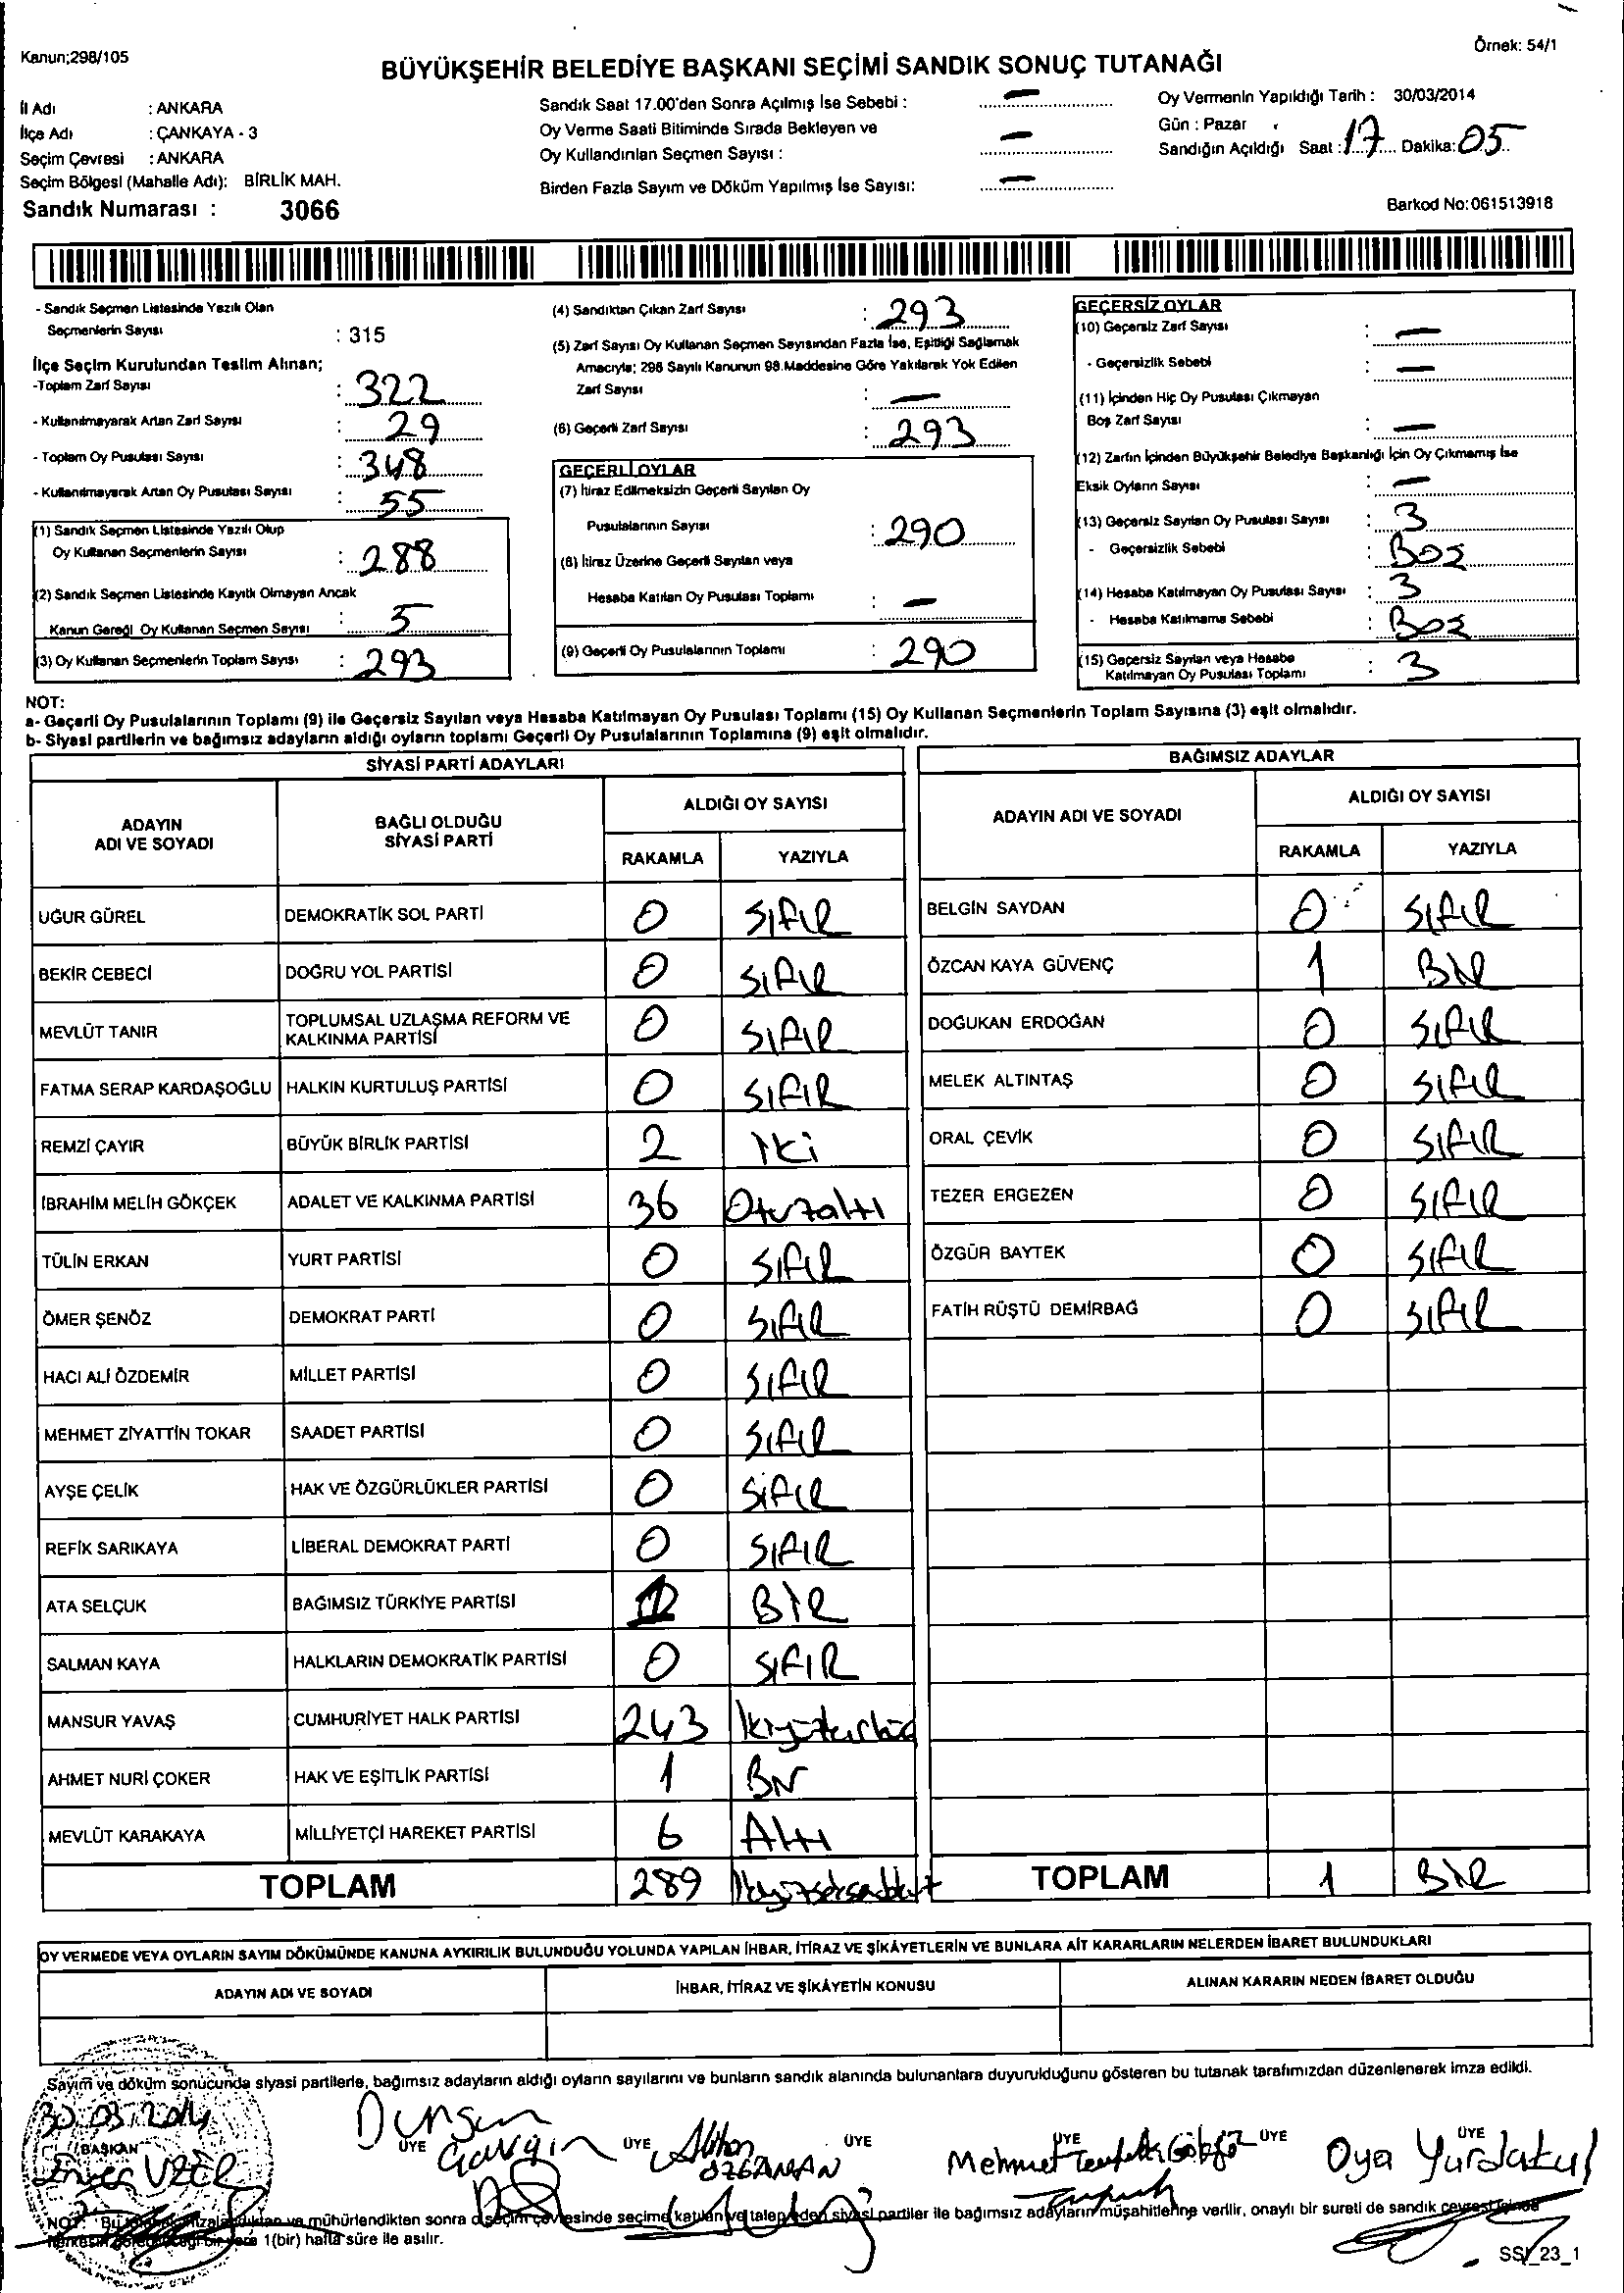 Kanun;298/105
Örnek: 54/1
BÜYÜKŞEHİR BELEDİYE BAŞKANI SEÇİMİ SANDIK SONUÇ TUTANAĞI
İl Adı : ANKARA
İlçe Adı : ÇANKAYA - 3
Seçim Çevresi : ANKARA
Seçim Bölgesi (Mahalle Adı): BİRLİK MAH.
Sandık Numarası : 3066
Sandık Saat 17.00'den Sonra Açılmış İse Sebebi : —
Oy Verme Saati Bitiminde Sırada Bekleyen ve
Oy Kullandırılan Seçmen Sayısı : —
Birden Fazla Sayım ve Döküm Yapılmış İse Sayısı: —
Oy Vermenin Yapıldığı Tarih : 30/03/2014
Gün : Pazar
Sandığın Açıldığı Saat : 17 Dakika: 05
Barkod No:061513918
- Sandık Seçmen Listesinde Yazılı Olan
Seçmenlerin Sayısı : 315
İlçe Seçim Kurulundan Teslim Alınan;
-Toplam Zarf Sayısı : 322
- Kullanılmayarak Artan Zarf Sayısı : 29
- Toplam Oy Pusulası Sayısı : 348
- Kullanılmayarak Artan Oy Pusulası Sayısı : 55
(1) Sandık Seçmen Listesinde Yazılı Olup
Oy Kullanan Seçmenlerin Sayısı : 288
(2) Sandık Seçmen Listesinde Kayıtlı Olmayan Ancak
Kanun Gereği Oy Kullanan Seçmen Sayısı : 5
(3) Oy Kullanan Seçmenlerin Toplam Sayısı : 293
(4) Sandıktan Çıkan Zarf Sayısı : 293
(5) Zarf Sayısı Oy Kullanan Seçmen Sayısından Fazla İse, Eşitliği Sağlamak
Amacıyla; 298 Sayılı Kanunun 98.Maddesine Göre Yakılarak Yok Edilen
Zarf Sayısı : —
(6) Geçerli Zarf Sayısı : 293
GEÇERLİ OYLAR
(7) İtiraz Edilmeksizin Geçerli Sayılan Oy
Pusulalarının Sayısı : 290
(8) İtiraz Üzerine Geçerli Sayılan veya
Hesaba Katılan Oy Pusulası Toplamı : —
(9) Geçerli Oy Pusulalarının Toplamı : 290
GEÇERSİZ OYLAR
(10) Geçersiz Zarf Sayısı : —
- Geçersizlik Sebebi : —
(11) İçinden Hiç Oy Pusulası Çıkmayan
Boş Zarf Sayısı : —
(12) Zarfın İçinden Büyükşehir Belediye Başkanlığı İçin Oy Çıkmamış İse
Eksik Oyların Sayısı : —
(13) Geçersiz Sayılan Oy Pusulası Sayısı : 3
- Geçersizlik Sebebi : BOŞ
(14) Hesaba Katılmayan Oy Pusulası Sayısı : 3
- Hesaba Katılmama Sebebi : BOŞ
(15) Geçersiz Sayılan veya Hesaba
Katılmayan Oy Pusulası Toplamı : 3
NOT:
a- Geçerli Oy Pusulalarının Toplamı (9) ile Geçersiz Sayılan veya Hesaba Katılmayan Oy Pusulası Toplamı (15) Oy Kullanan Seçmenlerin Toplam Sayısına (3) eşit olmalıdır.
b- Siyasi partilerin ve bağımsız adayların aldığı oyların toplamı Geçerli Oy Pusulalarının Toplamına (9) eşit olmalıdır.
SİYASİ PARTİ ADAYLARI
ADAYIN ADI VE SOYADI BAĞLI OLDUĞU SİYASİ PARTİ ALDIĞI OY SAYISI
RAKAMLA YAZIYLA
UĞUR GÜREL DEMOKRATİK SOL PARTİ 0 SIFIR
BEKİR CEBECİ DOĞRU YOL PARTİSİ 0 SIFIR
MEVLÜT TANIR TOPLUMSAL UZLAŞMA REFORM VE KALKINMA PARTİSİ 0 SIFIR
FATMA SERAP KARDAŞOĞLU HALKIN KURTULUŞ PARTİSİ 0 SIFIR
REMZİ ÇAYIR BÜYÜK BİRLİK PARTİSİ 2 iki
İBRAHİM MELİH GÖKÇEK ADALET VE KALKINMA PARTİSİ 36 Otuzaltı
TÜLİN ERKAN YURT PARTİSİ 0 SIFIR
ÖMER ŞENÖZ DEMOKRAT PARTİ 0 SIFIR
HACI ALİ ÖZDEMİR MİLLET PARTİSİ 0 SIFIR
MEHMET ZİYATTİN TOKAR SAADET PARTİSİ 0 SIFIR
AYŞE ÇELİK HAK VE ÖZGÜRLÜKLER PARTİSİ 0 SIFIR
REFİK SARIKAYA LİBERAL DEMOKRAT PARTİ 0 SIFIR
ATA SELÇUK BAĞIMSIZ TÜRKİYE PARTİSİ 1 BİR
SALMAN KAYA HALKLARIN DEMOKRATİK PARTİSİ 0 SIFIR
MANSUR YAVAŞ CUMHURİYET HALK PARTİSİ 243
AHMET NURİ ÇOKER HAK VE EŞİTLİK PARTİSİ 1 BİR
MEVLÜT KARAKAYA MİLLİYETÇİ HAREKET PARTİSİ 6 Altı
TOPLAM 289
BAĞIMSIZ ADAYLAR
ADAYIN ADI VE SOYADI ALDIĞI OY SAYISI
RAKAMLA YAZIYLA
BELGİN SAYDAN 0 SIFIR
ÖZCAN KAYA GÜVENÇ 1 BİR
DOĞUKAN ERDOĞAN 0 SIFIR
MELEK ALTINTAŞ 0 SIFIR
ORAL ÇEVİK 0 SIFIR
TEZER ERGEZEN 0 SIFIR
ÖZGÜR BAYTEK 0 SIFIR
FATİH RÜŞTÜ DEMİRBAĞ 0 SIFIR
TOPLAM 1 BİR
OY VERMEDE VEYA OYLARIN SAYIM DÖKÜMÜNDE KANUNA AYKIRILIK BULUNDUĞU YOLUNDA YAPILAN İHBAR, İTİRAZ VE ŞİKÂYETLERİN VE BUNLARA AİT KARARLARIN NELERDEN İBARET BULUNDUKLARI
ADAYIN ADI VE SOYADI İHBAR, İTİRAZ VE ŞİKÂYETİN KONUSU ALINAN KARARIN NEDEN İBARET OLDUĞU
Sayım ve döküm sonucunda siyasi partilerle, bağımsız adayların aldığı oyların sayılarını ve bunların sandık alanında bulunanlara duyurulduğunu gösteren bu tutanak tarafımızdan düzenlenerek imza edildi.
30.03.2014
BAŞKAN ÜYE ÜYE ÜYE ÜYE ÜYE ÜYE
Dursun
Mehmet
Oya Yurdakul
NOT: ve mühürlendikten sonra seçime katılan ve talep eden siyasi partiler ile bağımsız adayların müşahitlerine verilir, onaylı bir sureti de sandık çevresi
1(bir) hafta süre ile asılır.
23_1